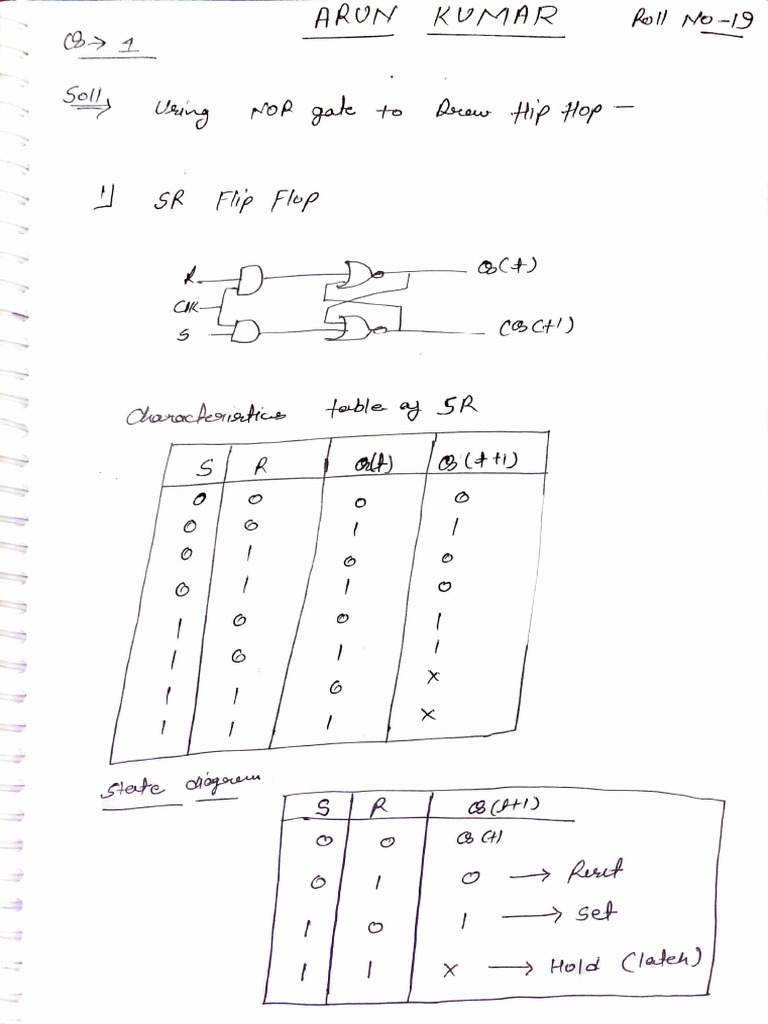 ARUN KUMAR Roll No-19
Q→ 1
Soll, Using NOR gate to Draw flip flop —
1) SR Flip Flop
R
CLK
S
Q(t)
Q(t)
Characteristics table of SR
S R Q(t) Q(t+1)
0 0 0 0
0 0 1 1
0 1 0 0
0 1 1 0
1 0 0 1
1 0 1 1
1 1 0 x
1 1 1 x
State diagram
S R Q(t+1)
0 0 Q(t)
0 1 0 → Reset
1 0 1 → Set
1 1 x → Hold (latch)